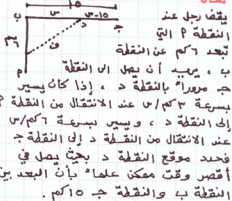 ١٥
ب س د ١٥-س ج
٦كم
ف
م
يقف رجل عند
النقطة م التي
تبعد ٦ كم عن النقطة
ب ، يجب أن يصل الى النقطة
ج مروراً بالنقطة د ، إذا كان يسير
بسرعة ٣ كم/س عند الانتقال من النقطة م
إلى النقطة د ، ويسير بسرعة ٦ كم/س
عند الانتقال من النقطة د إلى النقطة ج
فحدد موقع النقطة د بحيث يصل في
أقصر وقت ممكن علماً بأن البعد بين
النقطة ب والنقطة ج ١٥ كم.